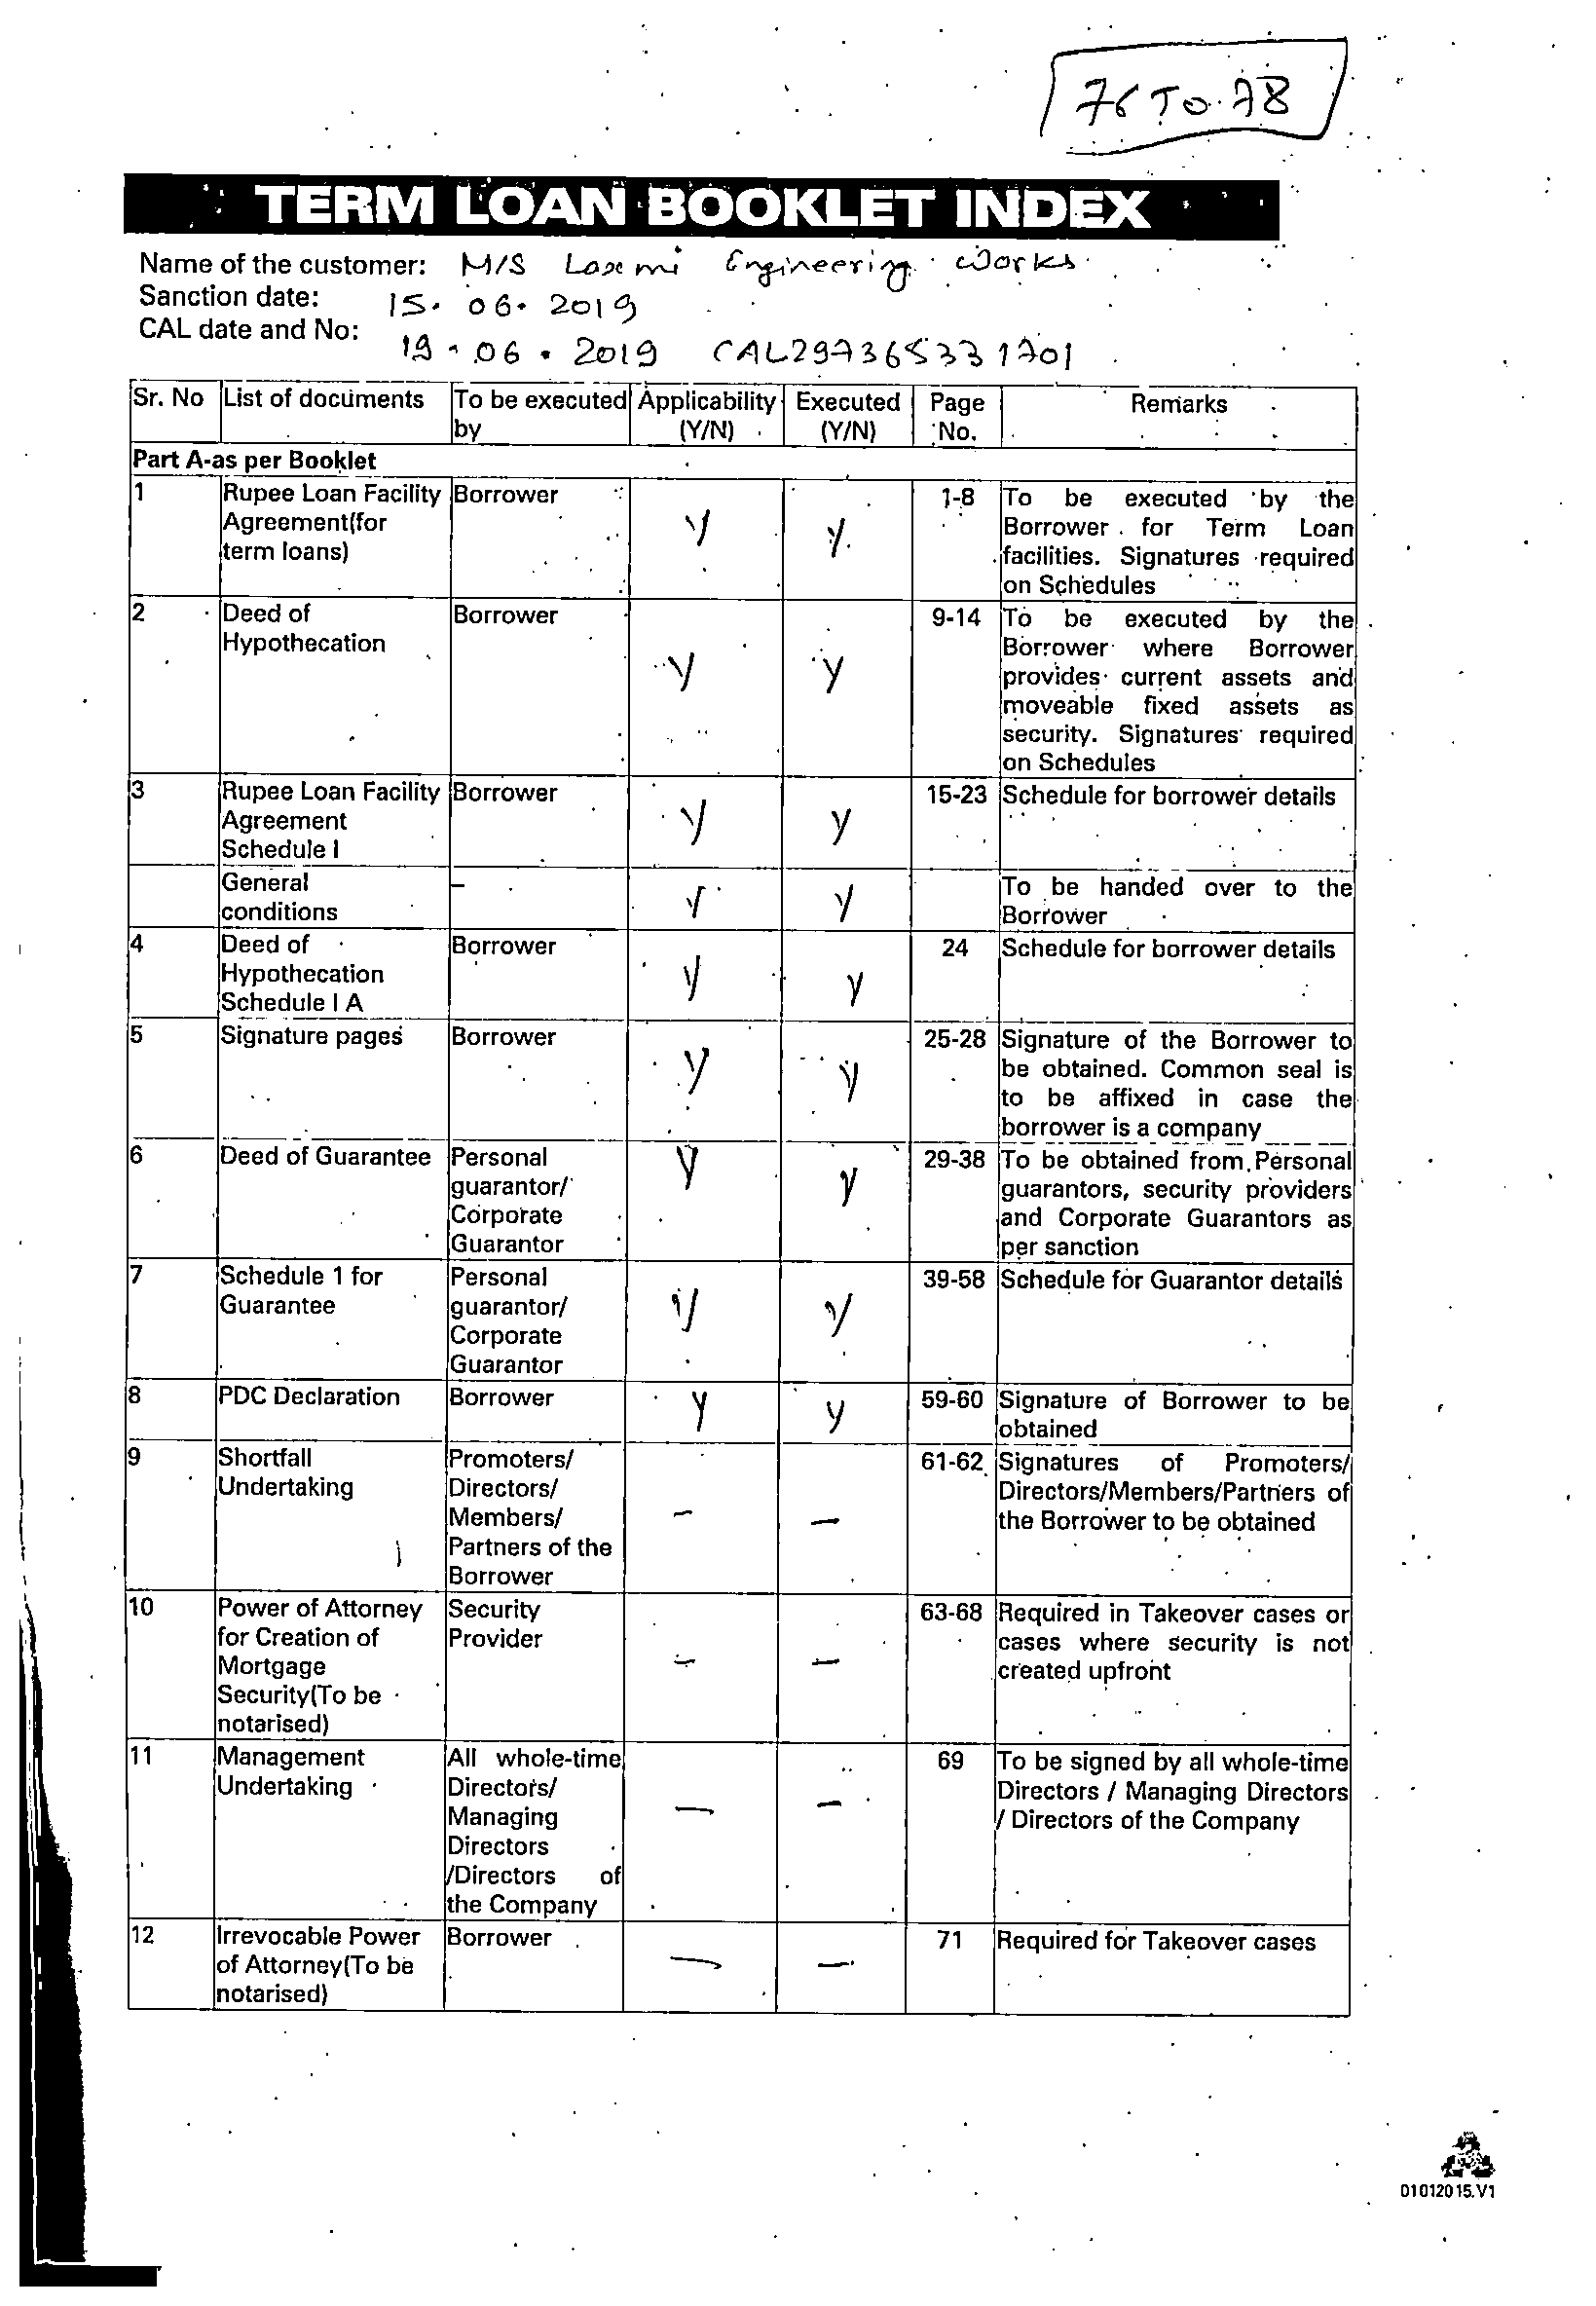 76 TO 78
TERM LOAN BOOKLET INDEX
Name of the customer: M/S Laxmi Engineering Works
Sanction date: 15.06.2019
CAL date and No: 19.06.2019 CAL297365331701
Sr. No List of documents To be executed by Applicability (Y/N) Executed (Y/N) Page No. Remarks
Part A-as per Booklet
1 Rupee Loan Facility Agreement(for term loans) Borrower Y Y 1-8 To be executed by the Borrower for Term Loan facilities. Signatures required on Schedules
2 Deed of Hypothecation Borrower Y Y 9-14 To be executed by the Borrower where Borrower provides current assets and moveable fixed assets as security. Signatures required on Schedules
3 Rupee Loan Facility Agreement Schedule I Borrower Y Y 15-23 Schedule for borrower details
General conditions – Y Y To be handed over to the Borrower
4 Deed of Hypothecation Schedule I A Borrower Y Y 24 Schedule for borrower details
5 Signature pages Borrower Y Y 25-28 Signature of the Borrower to be obtained. Common seal is to be affixed in case the borrower is a company
6 Deed of Guarantee Personal guarantor/ Corporate Guarantor Y Y 29-38 To be obtained from Personal guarantors, security providers and Corporate Guarantors as per sanction
7 Schedule 1 for Guarantee Personal guarantor/ Corporate Guarantor Y Y 39-58 Schedule for Guarantor details
8 PDC Declaration Borrower Y Y 59-60 Signature of Borrower to be obtained
9 Shortfall Undertaking Promoters/ Directors/ Members/ Partners of the Borrower – – 61-62 Signatures of Promoters/ Directors/Members/Partners of the Borrower to be obtained
10 Power of Attorney for Creation of Mortgage Security(To be notarised) Security Provider – – 63-68 Required in Takeover cases or cases where security is not created upfront
11 Management Undertaking All whole-time Directors/ Managing Directors /Directors of the Company – – 69 To be signed by all whole-time Directors / Managing Directors / Directors of the Company
12 Irrevocable Power of Attorney(To be notarised) Borrower – – 71 Required for Takeover cases
01012015.V1